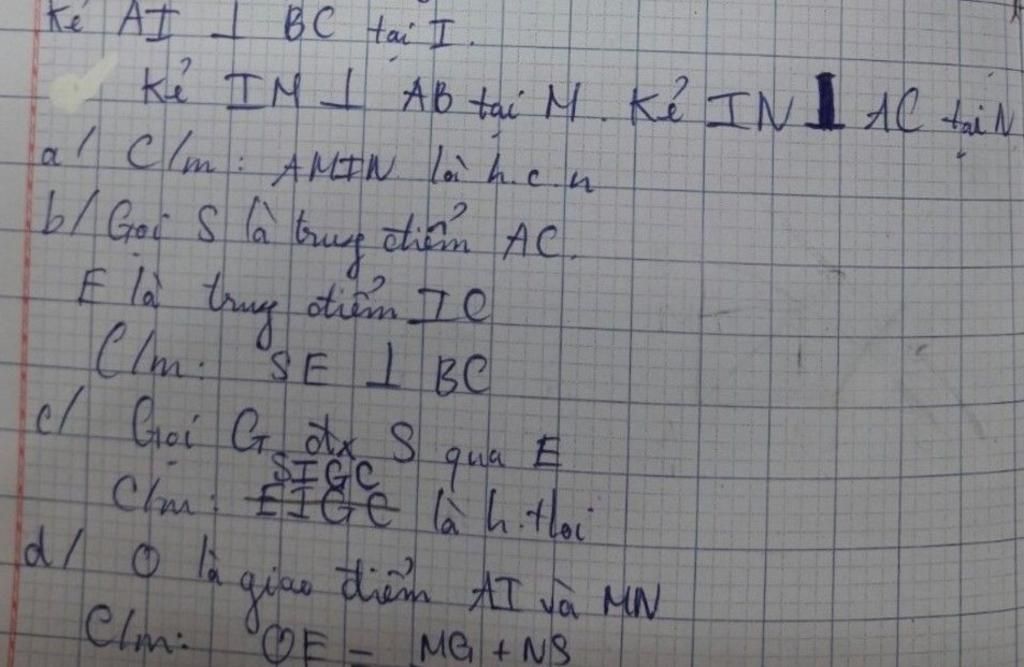 Kẻ AI ⊥ BC tại I.
Kẻ IM ⊥ AB tại M. Kẻ IN ⊥ AC tại N
a/ C/m: AMIN là h.c.n
b/ Gọi S là trung điểm AC.
E là trung điểm IC
C/m: SE ⊥ BC
c/ Gọi G đx S qua E
SIGC
C/m: EIGC là h.thoi
d/ O là giao điểm AI và MN
C/m: OE = MG + NS